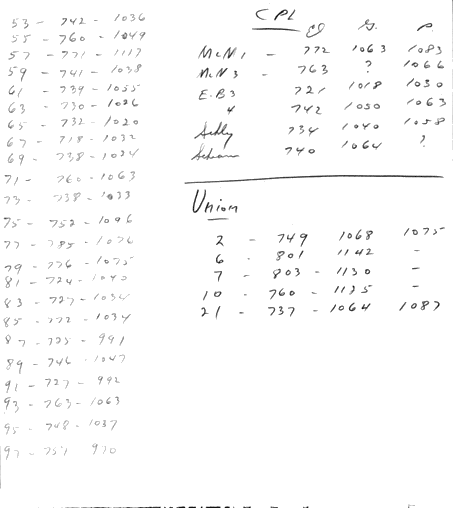 53 - 742 - 1036
55 - 760 - 1049
57 - 771 - 1117
59 - 741 - 1038
61 - 739 - 1055
63 - 730 - 1026
65 - 732 - 1020
67 - 718 - 1032
69 - 738 - 1024
71 - 760 - 1063
73 - 738 - 1033
75 - 752 - 1096
77 - 785 - 1076
79 - 776 - 1075
81 - 724 - 1045
83 - 727 - 1034
85 - 772 - 1034
87 - 725 - 991
89 - 746 - 1047
91 - 727 - 992
93 - 763 - 1063
95 - 748 - 1037
97 - 751 970
CPL
McN 1 - 772 1063 1083
McN 3 - 763 ? 1066
E.B3 721 1018 1030
4 742 1050 1063
734 1040 1058
740 1064 ?
Union
2 - 749 1068 1075
6 - 801 1142 -
7 - 803 - 1130 -
10 - 760 - 1135 -
21 - 737 - 1064 1087